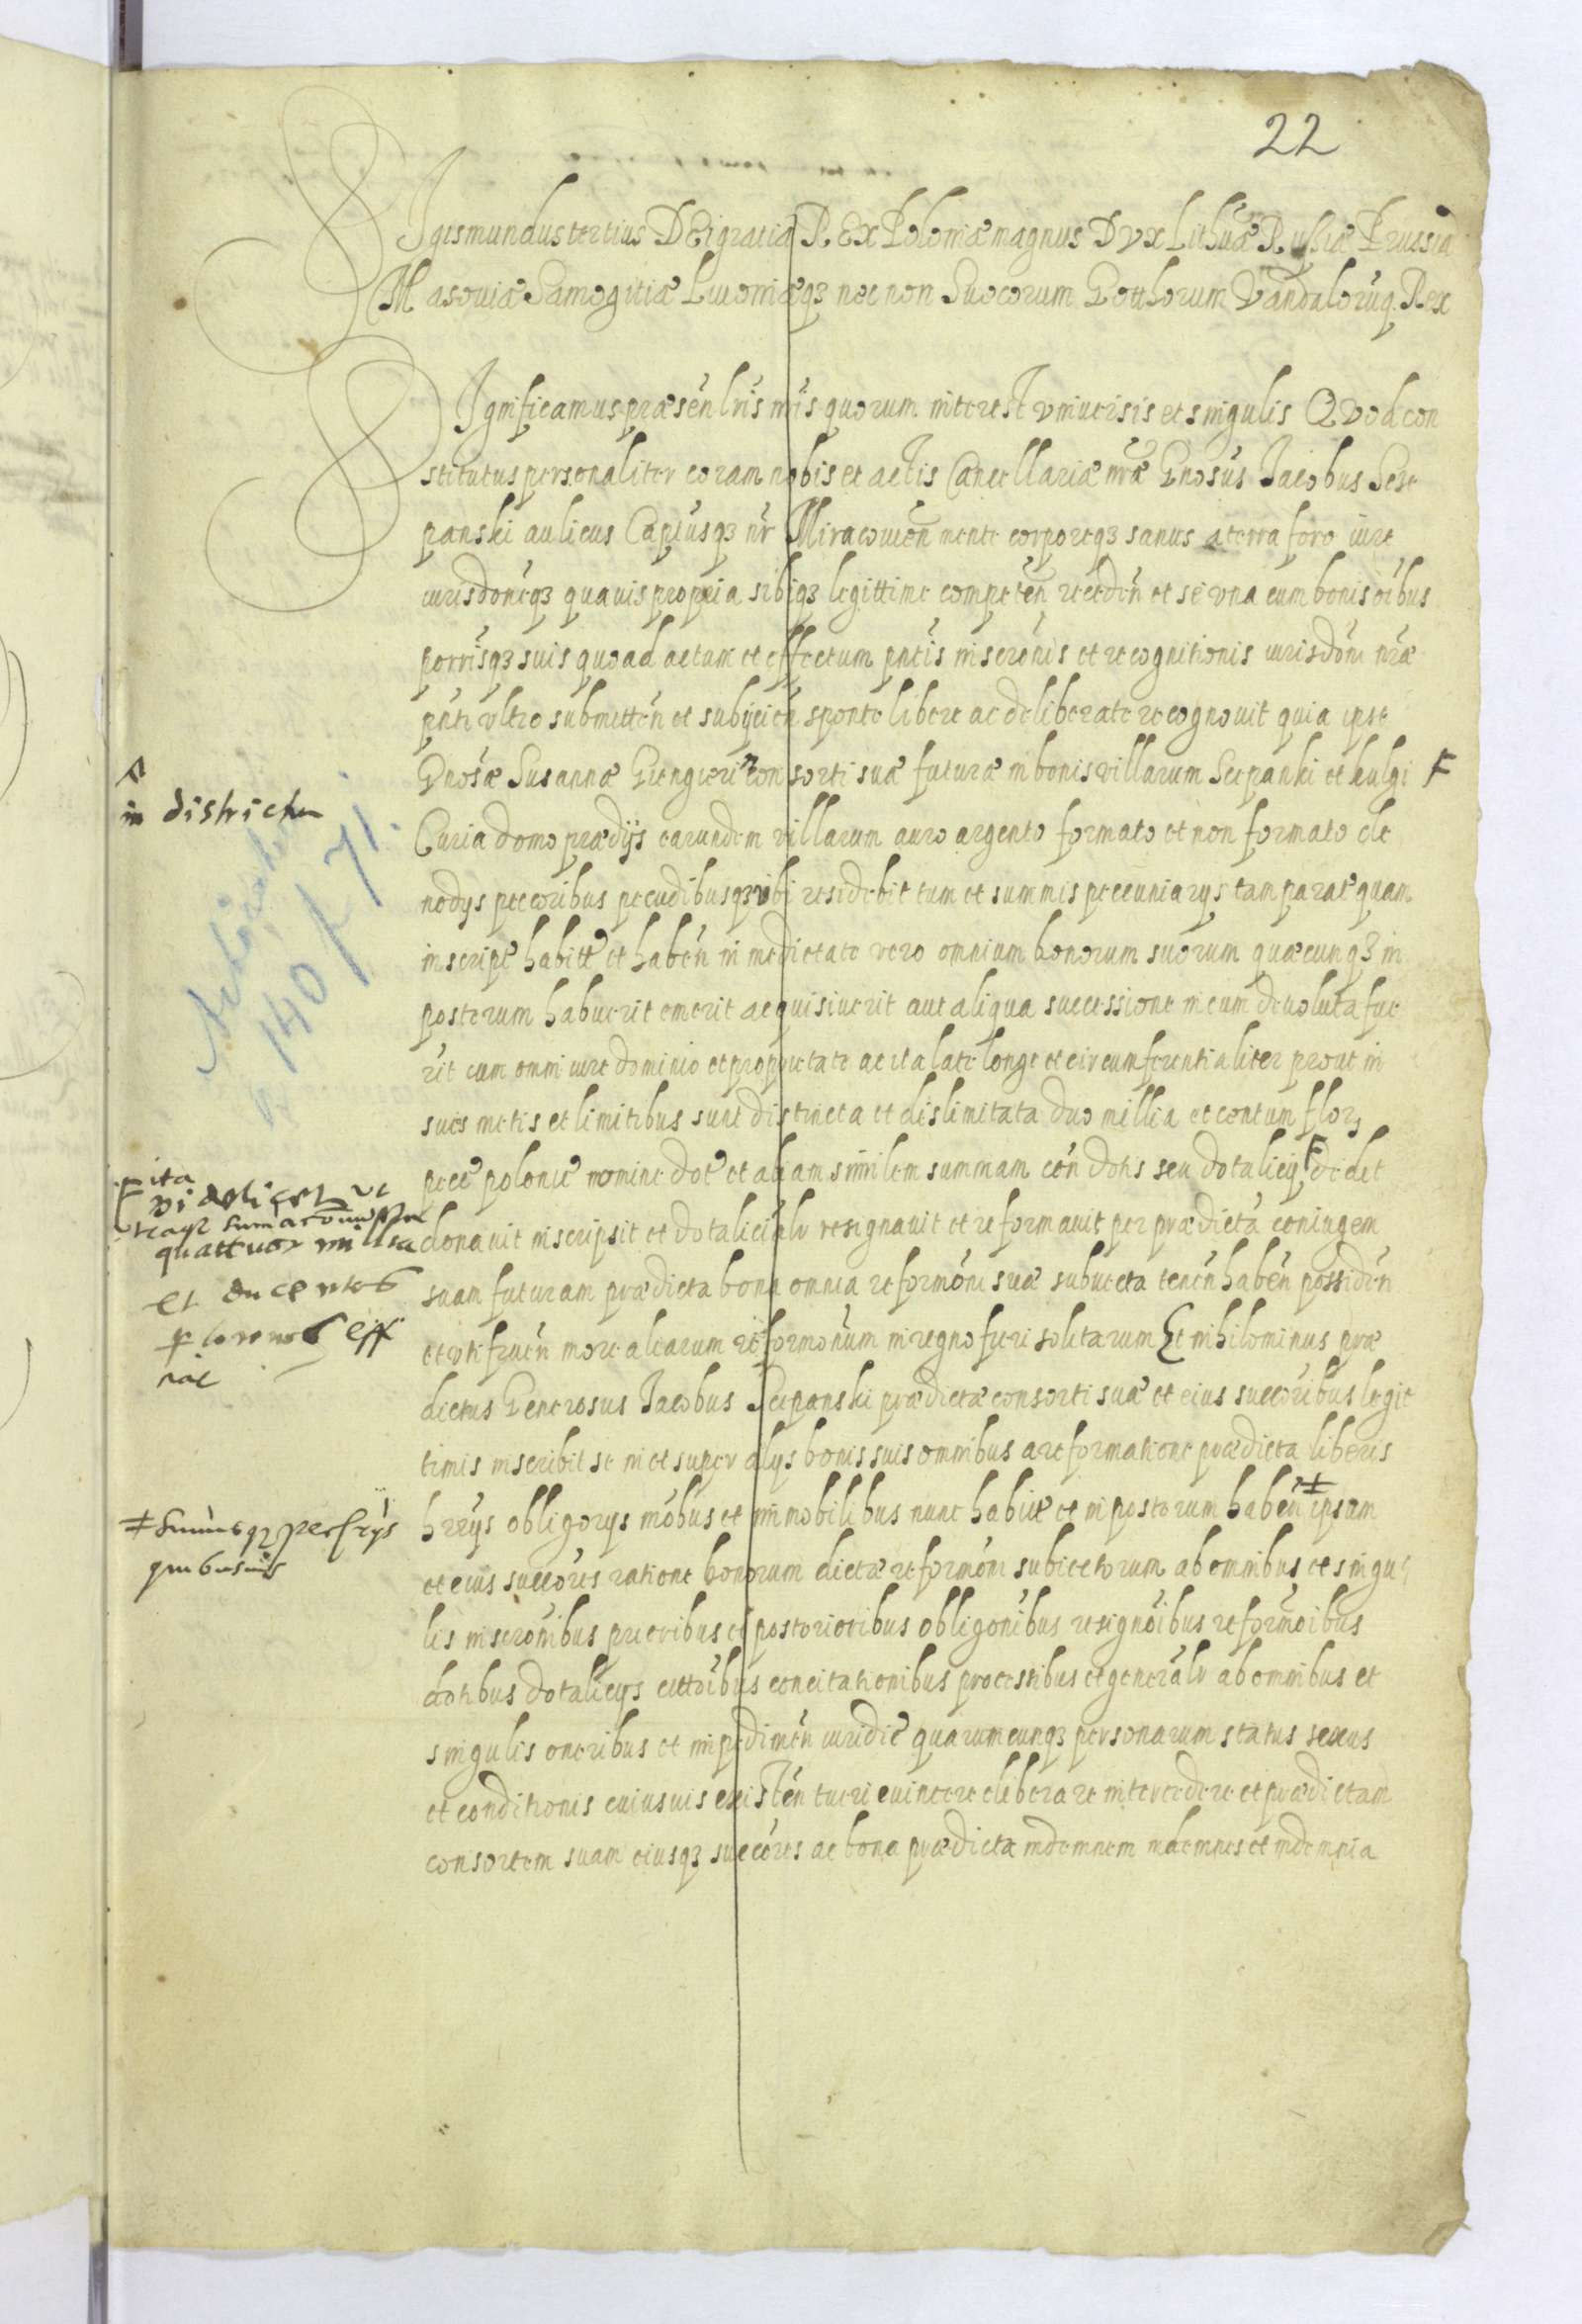 22
SIgismundus tertius DEi gratia REx Poloniæ magnus DVx Lithuæ Russiæ Prussiæ
Masouiæ Samogitiæ Liuoniæqꝫ nec non Suecorum Gotthorum Vandalorūq. Rex
SIgnificamus præsēn lrīs nrīs quorum interest vniuersis et singulis QVod con
stitutus personaliter coram nobis et actis Cancellariæ nrǣ Gnosūs Jacobus Scze
panski aulicus Captusqꝫ nr̄ Miracouień mente corporeqꝫ sanus a terra foro iure
iurisdoneqꝫ quauis propria sibiqꝫ legittime competeń recedēn et sē vna cum bonis oībus
ponīsqꝫ suis quoad actum et effectum pntīs inscronīs et recognitionis iurisdonī nrǣ
pntī vltro submitteń et subijcień sponte libere ac deliberate recognouit quia ipse
Gnosǣ Susannæ consorti suæ futuræ in bonis villarum Scepanki et kulgi F
in districtu
Curia domo prædijs earundem villarum auro argento formato et non formato cle
nodijs pecoribus pecudibusqꝫ vbi residebit tum et summis peccuniarijs tam parat̄ quam
inscript̄ habitt̄ et habeń in medietate vero omnium bonorum suorum quæcunqꝫ in
posterum habuerit emerit acquisiuerit aut aliqua successione in eum deuoluta fue
rit cum omni iure dominio et proprietate ac ita late longe et circumferentialiter prout in
suis metis et limitibus sunt distincta et dislimitata duo millia et centum flor
pecc̄ polonic̄ nomine dot̄ et aliam similem summam ceń dotis seu dotalicij F dedit
ita
videlicet vt
quattuor millia
et ducentos
florenos effi
ciat
donauit inscripsit et dotalicialr̄ resignauit et reformauit per prædictā coniugem
suam futuram prædicta bona omnia reformonī suæ subiecta teneń habeń possideń
et vtifrueń more aliarum reformonūm in regno fieri solitarum Et nihilominus præ
dictus Generosus Jacobus Scepanski prædictæ consorti suæ et eius succoribus legit
timis inscribit se in et super alijs bonis suis omnibus a reformatione prædicta liberis
hrrijs obligorys mobūs et immobilibus nunc habitt̄ et in posterum habeń ≠ ipsam
≠ Summisqꝫ pecūrijs
quibusuis
et eius succorēs ratione bonorum dictæ reformonī subiectorum ab omnibus et singu
lis inscronībus prioribus et posterioribus obligonībus resignoībus reformoībus
dotibus dotalicijs cittoībus concitationibus processibus et generalr̄ ab omnibus et
singulis oneribus et impedimeń iuridic̄ quarumcunqꝫ personarum status sexus
et conditionis cuiusuis existeń tueri euincere eliberare intercedere et prædictam
consortem suam eiusqꝫ succorēs ac bona prædicta indemnem indemnes et indemnia
140 f 71.